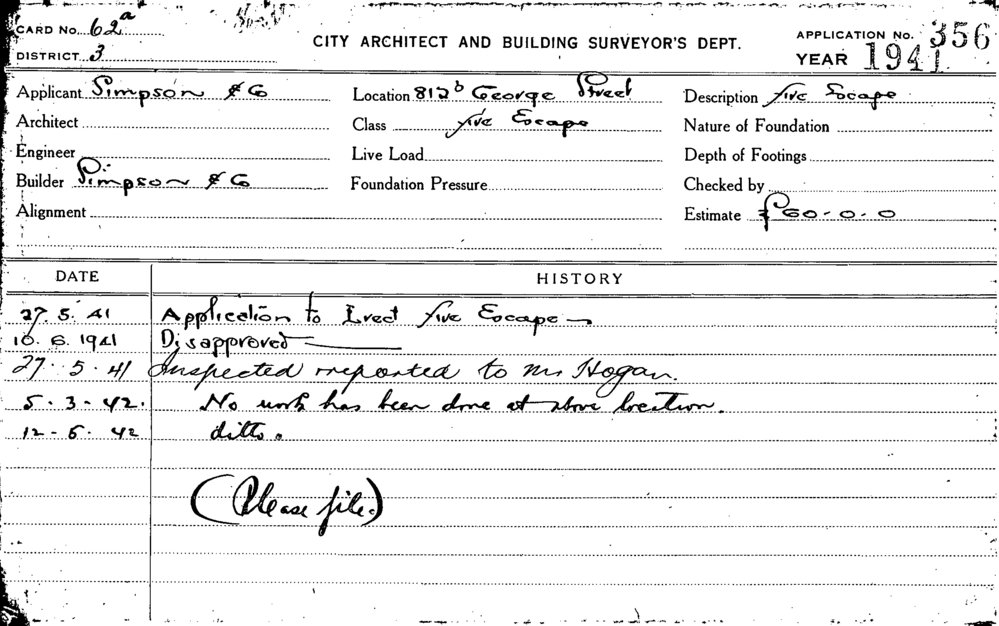 CARD No. 62a
CITY ARCHITECT AND BUILDING SURVEYOR'S DEPT.
APPLICATION No. 356
DISTRICT 3
YEAR 1941
Applicant Simpson & Co Location 812b George Street Description Fire Escape
Architect Class Fire Escape Nature of Foundation
Engineer Live Load Depth of Footings
Builder Simpson & Co Foundation Pressure Checked by
Alignment Estimate £60-0-0
DATE HISTORY
27.5.41 Application to Erect Fire Escape
10.6.1941 Disapproved
27.5.41 Inspected reported to Mr Hogan.
5-3-42. No work has been done at above location.
12-5-42 ditto.
(Please file.)